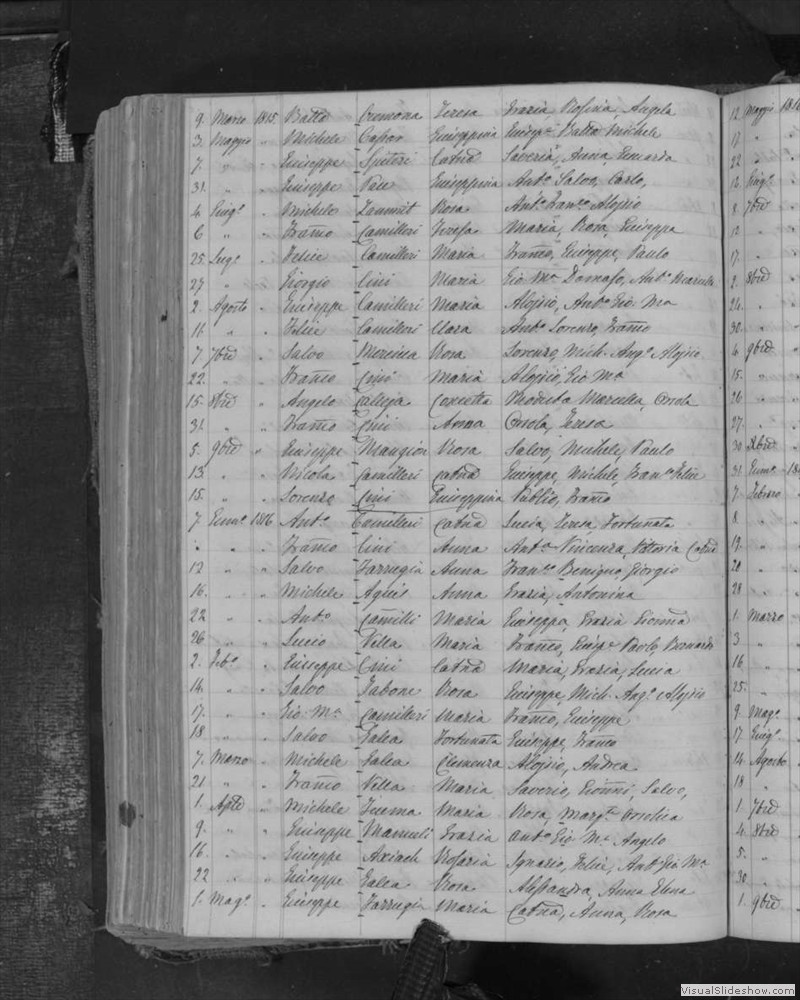 9. Marzo 1815 Batta Cremona Teresa Grazia Rosina, Angela
3. Maggio " Michele Giuseppina Giusepe Batta Michele
7. " " Giuseppe Spiteri Catna Saveria, Anna
31. " " Giuseppe Pace Giuseppina Anto Salvo, Carlo,
4. Giugo " Michele Zammit Rosa Anto Franco Aloysio
6 " " Franco Camilleri Teresa Maria, Rosa, Giuseppa
25. Lugo " Felice Camilleri Maria Franco, Giuseppe, Paulo
27 " " Giorgio Cini Maria Gio Ma Damaso, Anto
2. Agosto " Giuseppe Camilleri Maria Aloysio, Anto Gio. Ma
11. " " Felice Camilleri Clara Anto Lorenzo, Franco
7. 7bre " Salvo Rosa Lorenzo, Mich. Ango Aloysio
22. " " Franco Cini Maria Aloysio, Gio Ma
15. 8bre " Angelo Calleja Concetta Marcella, Orsola
31. " " Franco Cini Anna Orsola, Teresa
5. 9bre " Giuseppe Mangion Rosa Salvo, Michele, Paulo
13. " " Nicola Camilleri Catna Giuseppe, Michele, Franco Felice
15. " " Lorenzo Cini Giuseppina Publio, Franco
7. Genno 1816 Anto Camilleri Catna Lucia, Teresa, Fortunata
" " " Franco Cini Anna Anta Vincenza, Vittoria Catna
12 " " Salvo Farrugia Anna Franco Benigno, Giorgio
16. " " Michele Agius Anna Grazia, Antonina
22 " " Anto Camilleri Maria Giuseppa, Grazia
26 " " Lucio Vella Maria Franco, Giusepe Paolo, Bernardo
2. Febo " Giuseppe Cini Catna Maria, Grazia, Lucia
14. " " Salvo Tabone Rosa Giuseppe, Mich. Ango Aloysio
17. " " Gio. Ma Camilleri Maria Franco, Giuseppe
18 " " Salvo Galea Fortunata Giuseppe, Franco
7. Marzo " Michele Galea Clemenza Aloysio, Andrea
21 " " Franco Vella Maria Saverio, Gionni, Salvo,
1. Aple " Michele Maria Rosa, Margta
9. " " Giuseppe Grazia Anto Gio Ma Angelo
16. " " Giuseppe Axiach Rosaria Ignazio, Felice, Anto Gio Ma
22 " " Giuseppe Galea Rosa Alessandra, Anna Elena
1. Mago " Giuseppe Farrugia Maria Catna, Anna, Rosa
12 Maggio
17 "
22 "
12. Giugo
8. 7bre
12 "
17. "
2. 8bre
24. "
30. "
4. 9bre
15. "
26 "
27. "
30 Xbre
31. Genno
7. Febraro
8. "
19. "
20 "
28 "
1. Marzo
3 "
16 "
25. "
9. Mago
17. Giugo
14. Agosto
18 "
1. 7bre
4. 8bre
5. "
30 "
1. 9bre
VisualSlideshow.com